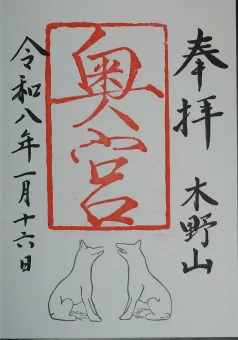 奉拝
木野山
奥宮
令和八年一月十六日